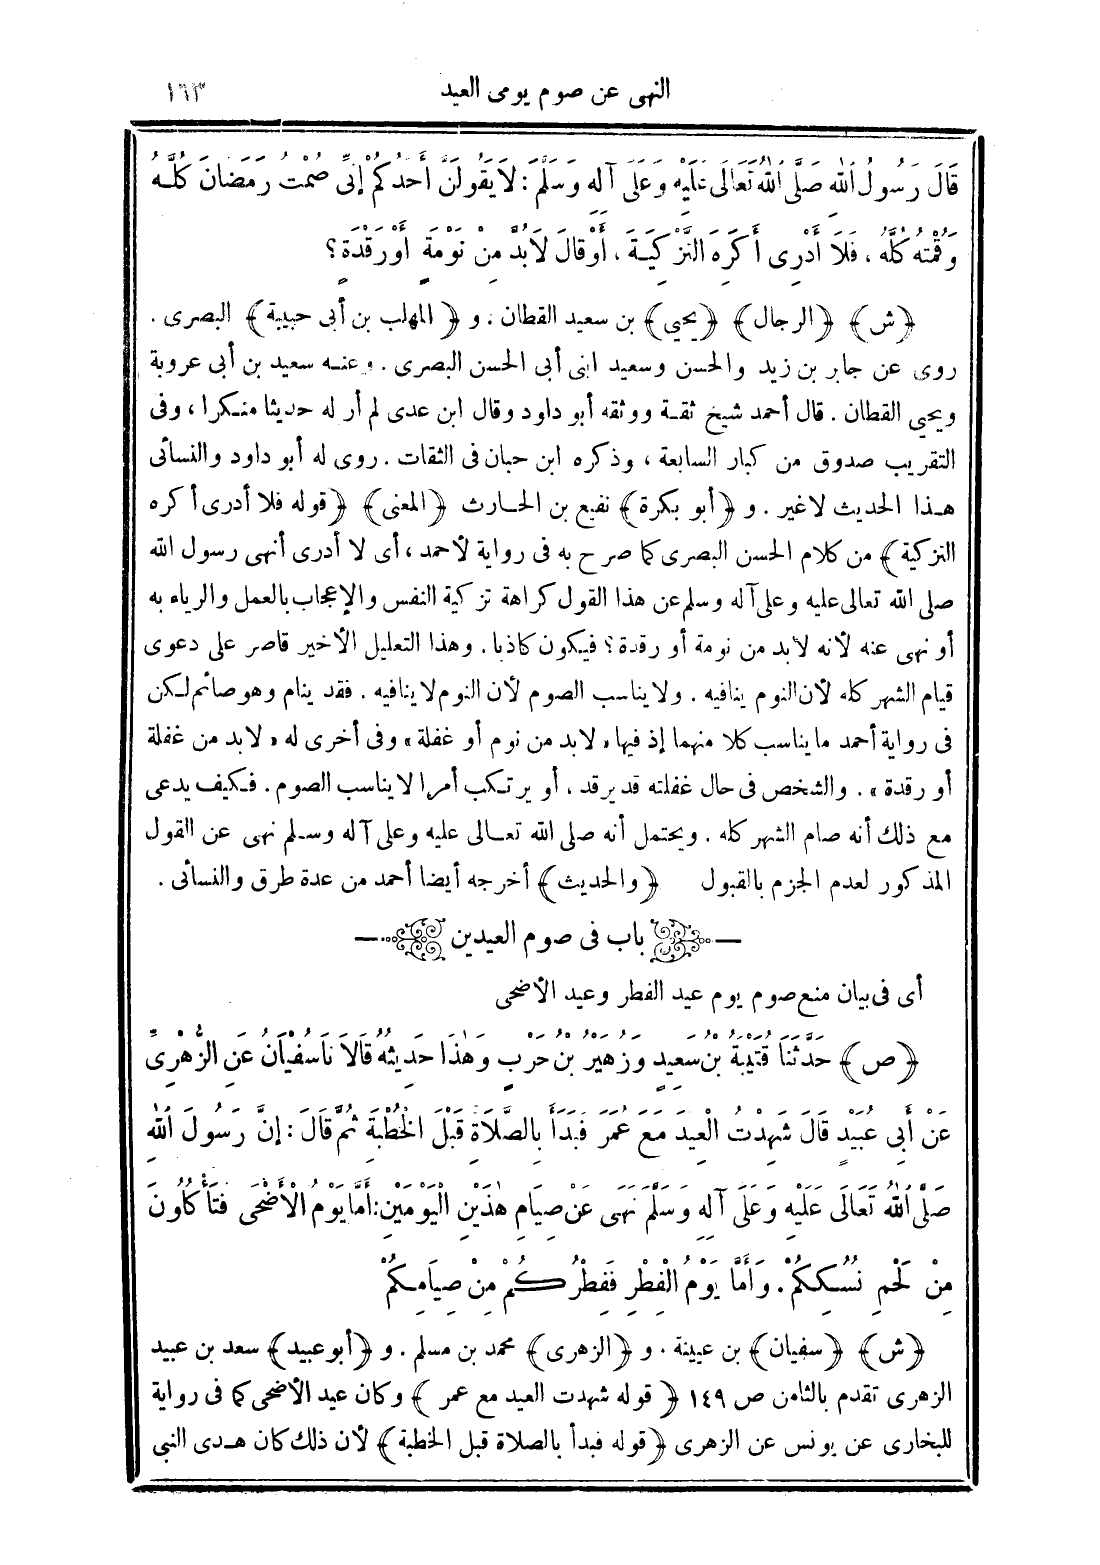 النهى عن صوم يومى العيد ١٦٣
قَالَ رَسُولُ اللهِ صَلَّى اللهُ تَعَالَى عَلَيْهِ وَعَلَى آلِهِ وَسَلَّمَ : لَا يَقُولَنَّ أَحَدُكُمْ إِنِّى صُمْتُ رَمَضَانَ كُلَّهُ
وَقُمْتُهُ كُلَّهُ ، فَلَا أَدْرِى أَكَرِهَ التَّزْكِيَةَ ، أَوْ قَالَ لَا بُدَّ مِنْ نَوْمَةٍ أَوْ رَقْدَةٍ ؟
﴿ش﴾ ﴿الرجال﴾ ﴿يحيى﴾ بن سعيد القطان . و ﴿المهلب بن أبى حبيبة﴾ البصرى .
روى عن جابر بن زيد والحسن وسعيد ابنى أبى الحسن البصرى . وعنه سعيد بن أبى عروبة
ويحيى القطان . قال أحمد شيخ ثقة ووثقه أبو داود وقال ابن عدى لم أر له حديثا منكرا ، وفى
التقريب صدوق من كبار السابعة ، وذكره ابن حبان فى الثقات . روى له أبو داود والنسائى
هذا الحديث لا غير . و ﴿أبو بكرة﴾ نفيع بن الحارث ﴿المعنى﴾ ﴿قوله فلا أدرى أكره
التزكية﴾ من كلام الحسن البصرى كما صرح به فى رواية لأحمد ، أى لا أدرى أنهى رسول الله
صلى الله تعالى عليه وعلى آله وسلم عن هذا القول كراهة تزكية النفس والإعجاب بالعمل والرياء به
أو نهى عنه لأنه لابد من نومة أو رقدة ؟ فيكون كاذبا . وهذا التعليل الأخير قاصر على دعوى
قيام الشهر كله لأن النوم ينافيه . ولا يناسب الصوم لأن النوم لا ينافيه . فقد ينام وهو صائم لكن
فى رواية أحمد ما يناسب كلا منهما إذ فيها « لابد من نوم أو غفلة » وفى أخرى له « لابد من غفلة
أو رقدة » . والشخص فى حال غفلته قد يرقد ، أو يرتكب أمرا لا يناسب الصوم . فكيف يدعى
مع ذلك أنه صام الشهر كله . ويحتمل أنه صلى الله تعالى عليه وعلى آله وسلم نهى عن القول
المذكور لعدم الجزم بالقبول ﴿والحديث﴾ أخرجه أيضا أحمد من عدة طرق والنسائى .
باب فى صوم العيدين
أى فى بيان منع صوم يوم عيد الفطر وعيد الأضحى
﴿ص﴾ حَدَّثَنَا قُتَيْبَةُ بْنُ سَعِيدٍ وَزُهَيْرُ بْنُ حَرْبٍ وَهٰذَا حَدِيثُهُ قَالَا نَا سُفْيَانُ عَنِ الزُّهْرِىِّ
عَنْ أَبِى عُبَيْدٍ قَالَ شَهِدْتُ الْعِيدَ مَعَ عُمَرَ فَبَدَأَ بِالصَّلَاةِ قَبْلَ الْخُطْبَةِ ثُمَّ قَالَ : إِنَّ رَسُولَ اللهِ
صَلَّى اللهُ تَعَالَى عَلَيْهِ وَعَلَى آلِهِ وَسَلَّمَ نَهَى عَنْ صِيَامِ هٰذَيْنِ الْيَوْمَيْنِ : أَمَّا يَوْمُ الْأَضْحَى فَتَأْكُلُونَ
مِنْ لَحْمِ نُسُكِكُمْ . وَأَمَّا يَوْمُ الْفِطْرِ فَفِطْرُكُمْ مِنْ صِيَامِكُمْ
﴿ش﴾ ﴿سفيان﴾ بن عيينة . و ﴿الزهرى﴾ محمد بن مسلم . و ﴿أبو عبيد﴾ سعد بن عبيد
الزهرى تقدم بالثامن ص ١٤٩ ﴿قوله شهدت العيد مع عمر﴾ وكان عيد الأضحى كما فى رواية
للبخارى عن يونس عن الزهرى ﴿قوله فبدأ بالصلاة قبل الخطبة﴾ لأن ذلك كان هدى النبى